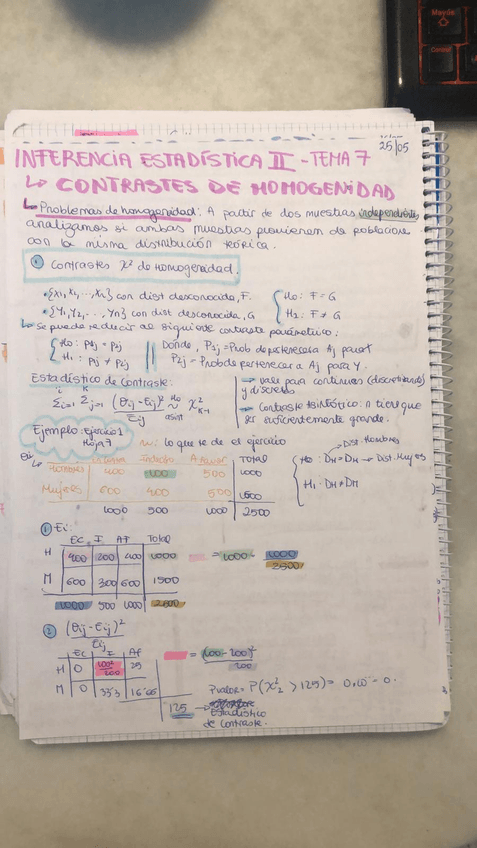 Mayús
Control
25/05
INFERENCIA ESTADÍSTICA II - TEMA 7
↳ CONTRASTES DE HOMOGENIDAD
↳ Problemas de homogenidad: A partir de dos muestras independientes
analizamos si ambas muestras provienen de poblaciones
con la misma distribución teórica.
① Contrastes χ² de homogenidad.
con dist desconocida, F. { H0: F = G
• {Y1, Y2, ..., Yn} con dist desconocida, G H1: F ≠ G
↳ Se puede reducir al siguiente contraste paramétrico:
{ H0: P1j = P2j || Donde, P1j = Prob de pertenecer a Aj para X
H1: P1j ≠ P2j || P2j = Prob de pertenecer a Aj para Y.
Estadístico de contraste: → Vale para continuas (discretizando)
y discretas
→ Contraste asintótico: n tiene que
ser suficientemente grande.
Ejemplo: Ejercicio 1
Hoja 7
lo que se de el ejercicio
Dist. Hombres
Indecisa A favor Total
Hombres 400 100 500 1000
Mujeres 600 400 500 1500
1000 500 1000 2500
→ Dist. Mujeres
① Eij:
EC I AF Total
H 400 200 400 1000 = 1000 · 1000 / 2500
M 600 300 600 1500
1000 500 1000 2500
② (Oij - Eij)² / Eij
EC I AF
H 0 100²/200 25 = (100 - 200)² / 200
M 0 33'3 16'66
Pvalor = P(χ²₂ > 125) =
125 → Estadístico
de contraste.